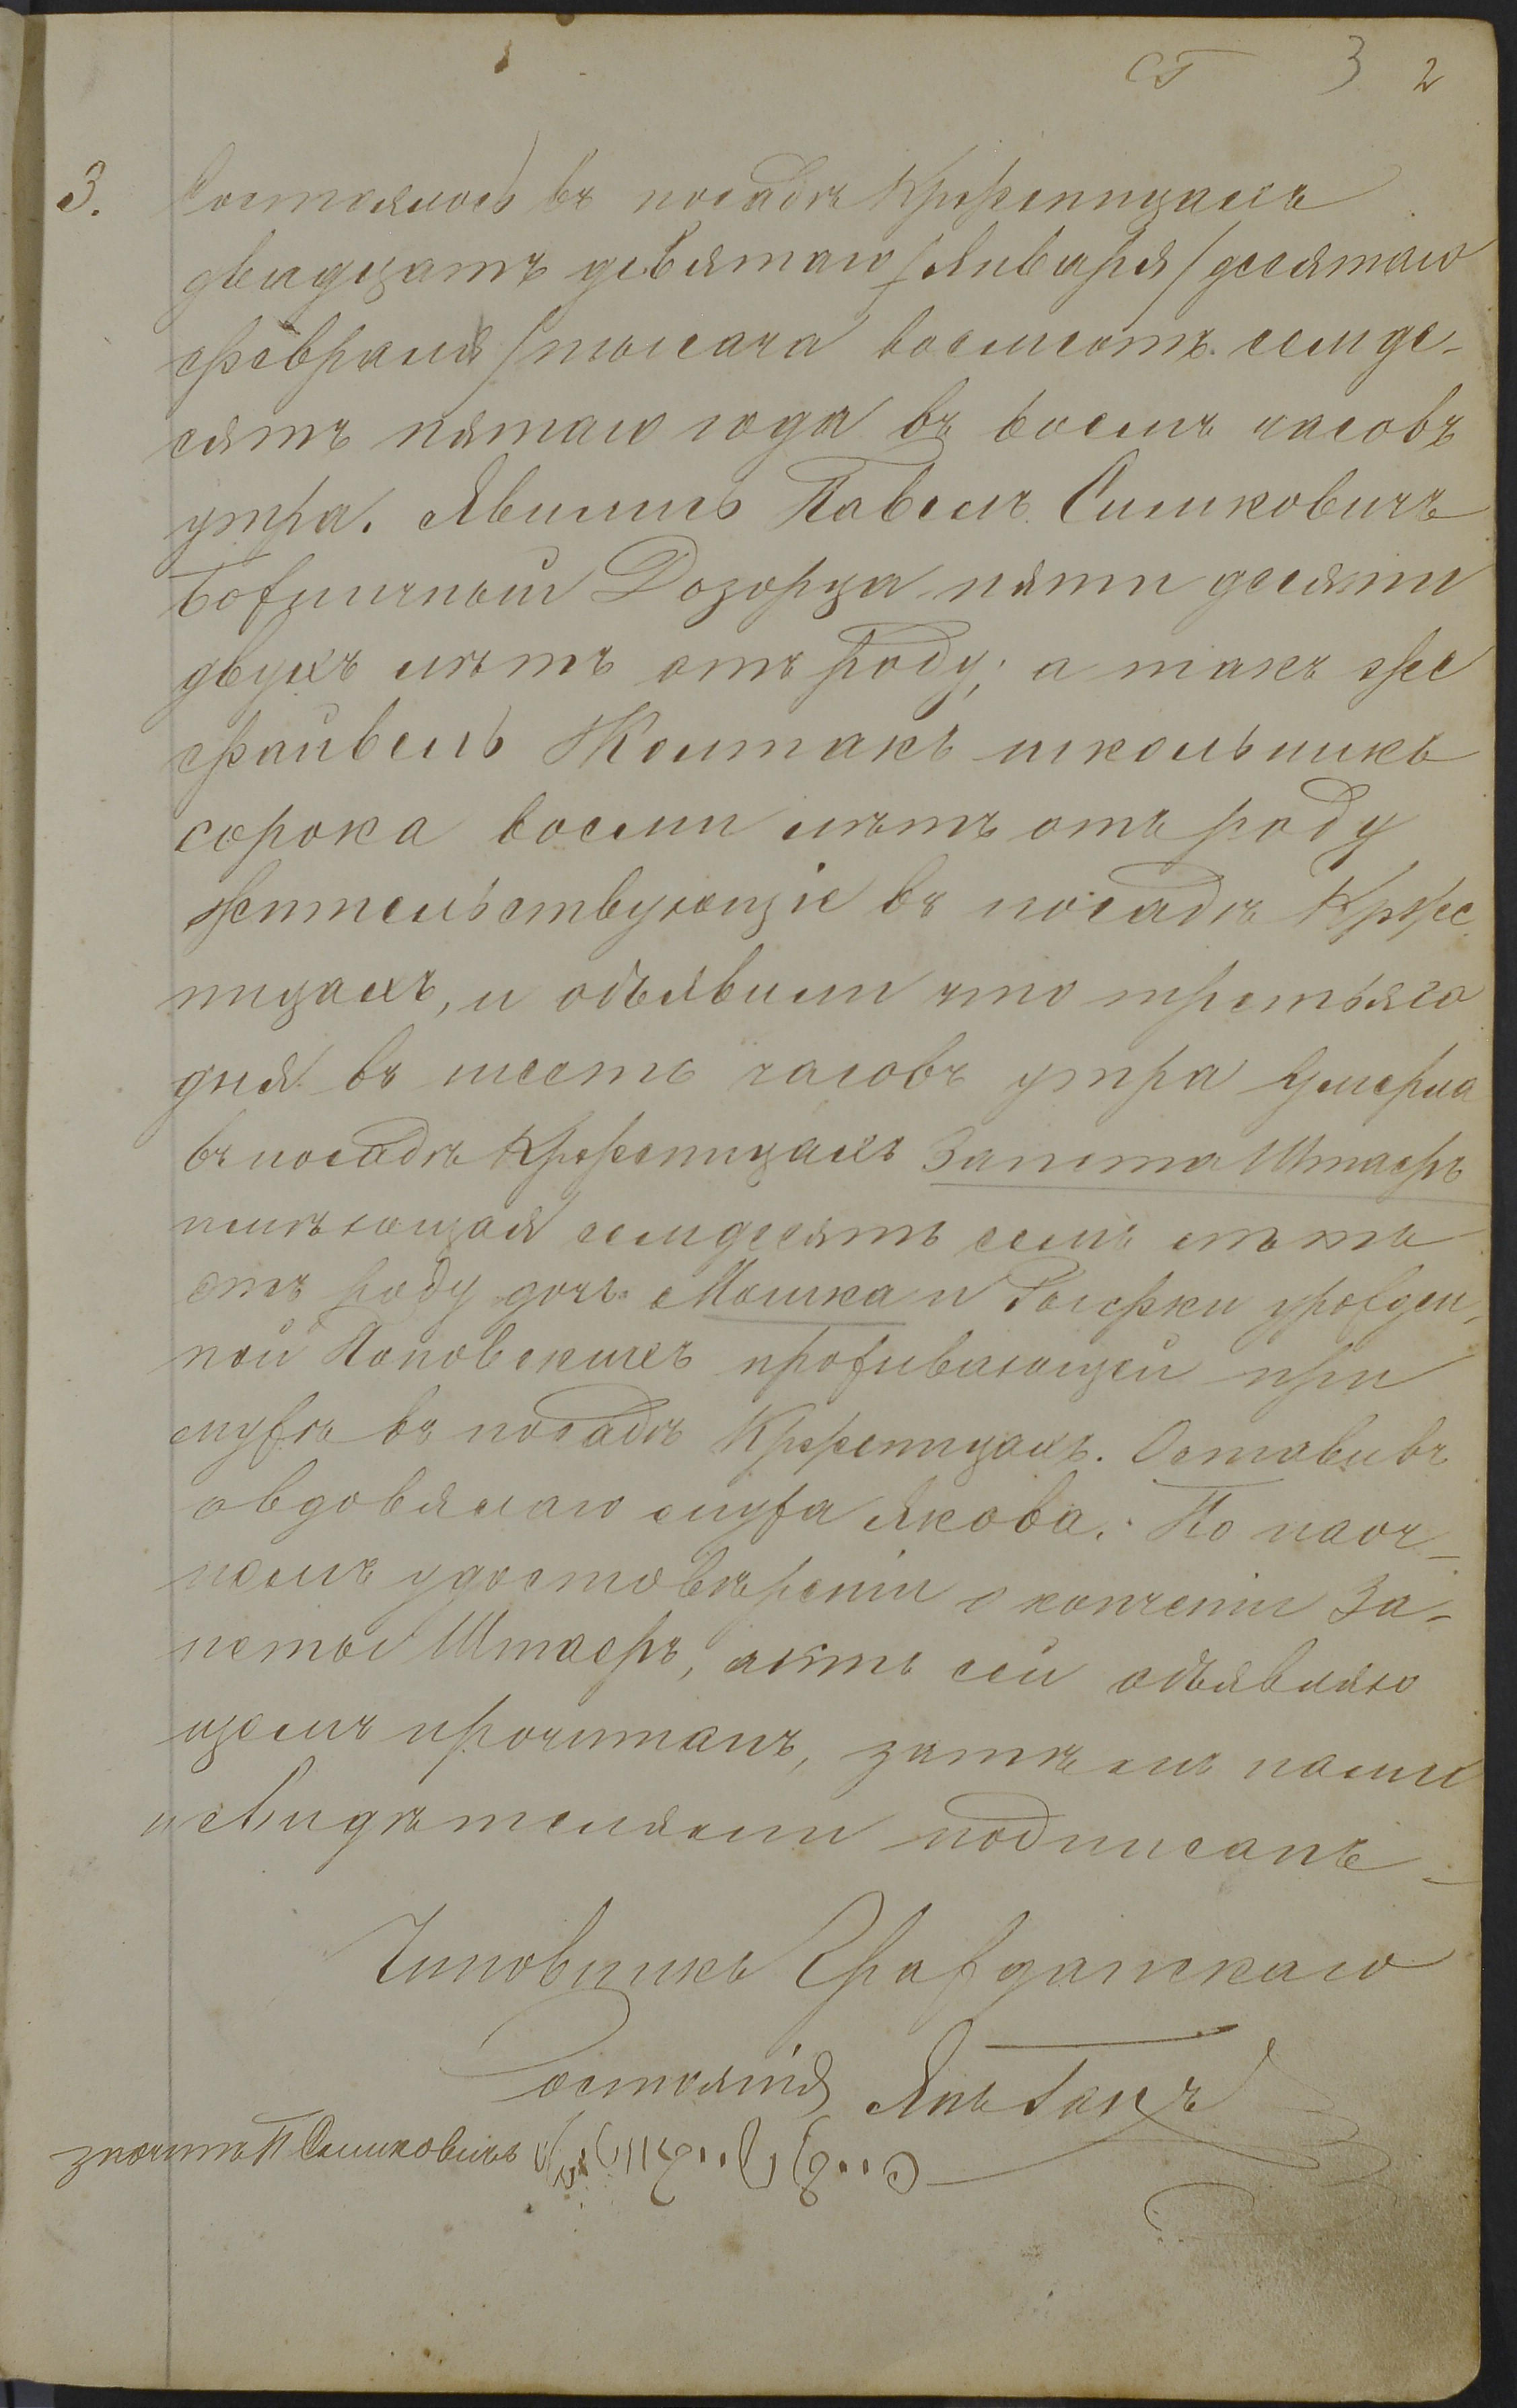 СГ 3 2
3. Состоялось въ посадѣ Кржепицахъ
двадцать девятаго /Января/ десятаго
февраля/ тысяча восмсотъ семде-
сятъ пятаго года въ восемъ часовъ
утра. Явились Павелъ Симковичъ
Божничный Дозорца пяти десяти
двухъ лѣтъ отъ роду, а такъ же
Файвель Жолтакъ школьникъ
сорока восми лѣтъ отъ роду
жительствующіе въ посадѣ Крже
пицахъ, и объявили что третьяго
дня въ шесть часовъ утра умерла
въ посадѣ Кржепицахъ Запета Штаеръ
имѣющая семдесятъ семъ лѣтъ
отъ роду дочь Мошка и урожден-
ной проживающей при
мужѣ въ посадѣ Кржепицахъ. Оставивъ
овдовялаго мужа Якова. По наоч-
номъ удостовѣреніи о конченіи За-
петы Штаеръ, актъ сей объявляю
щемъ прочитанъ, затѣмъ нами
и свидѣтелями подписанъ
Чиновникъ Гражданскаго
Состоянія Янъ
значитъ П Симковичъ